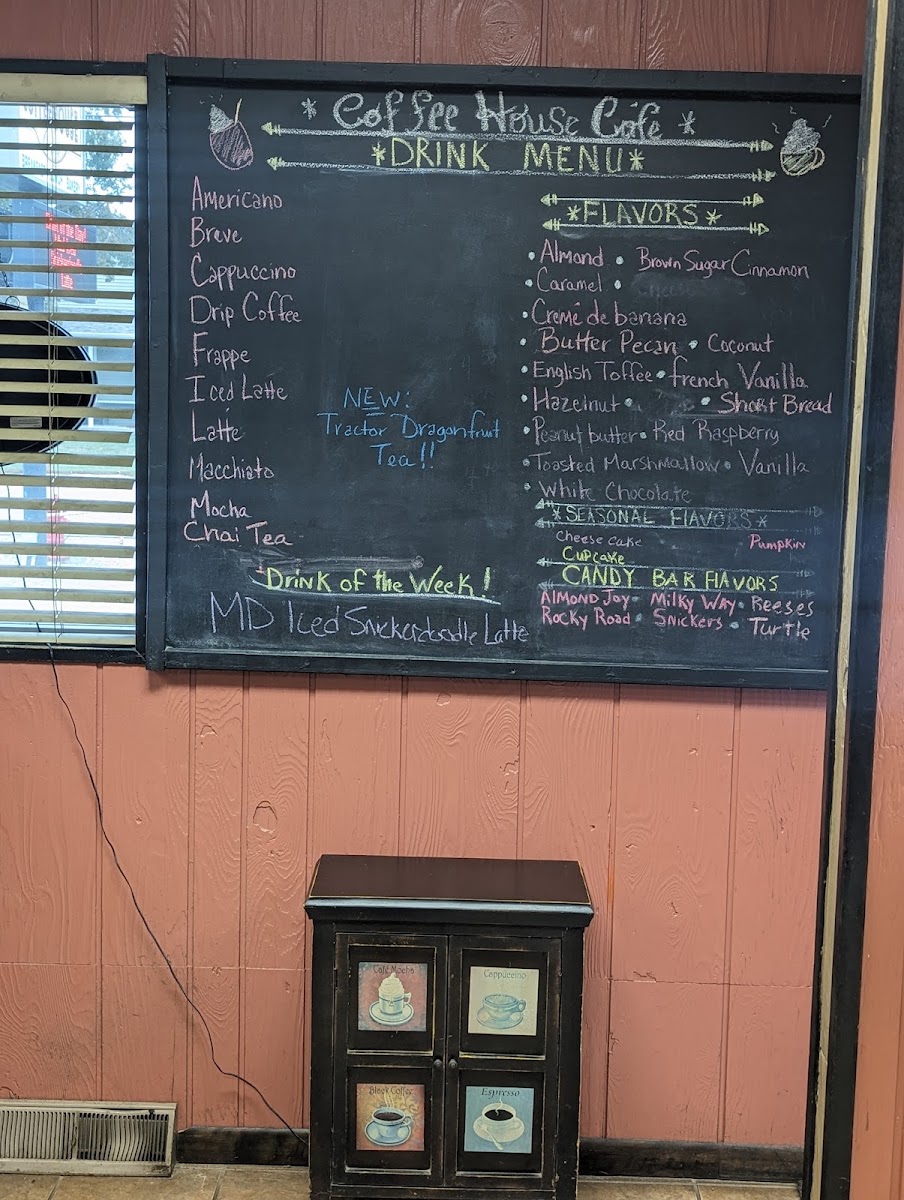 * Coffee House Cafe *
*DRINK MENU*
Americano
Breve
Cappuccino
Drip Coffee
Frappe
Iced Latte
Latte
Macchiato
Mocha
Chai Tea
NEW:
Tractor Dragonfruit
Tea!!
Drink of the Week!
MD Iced Snickerdoodle Latte
*FLAVORS*
• Almond • Brown Sugar Cinnamon
• Caramel •
• Cremé de banana
• Butter Pecan • Coconut
• English Toffee • french Vanilla
• Hazelnut • • Short Bread
• Peanut butter • Red Raspberry
• Toasted Marshmallow • Vanilla
• White Chocolate
*SEASONAL FLAVORS*
Cheese cake Pumpkin
Cupcake
CANDY BAR FLAVORS
ALMOND JOY • MILKY WAY • REESES
ROCKY ROAD • SNICKERS • TURTLE
Café Mocha
Cappuccino
Black Coffee
Espresso